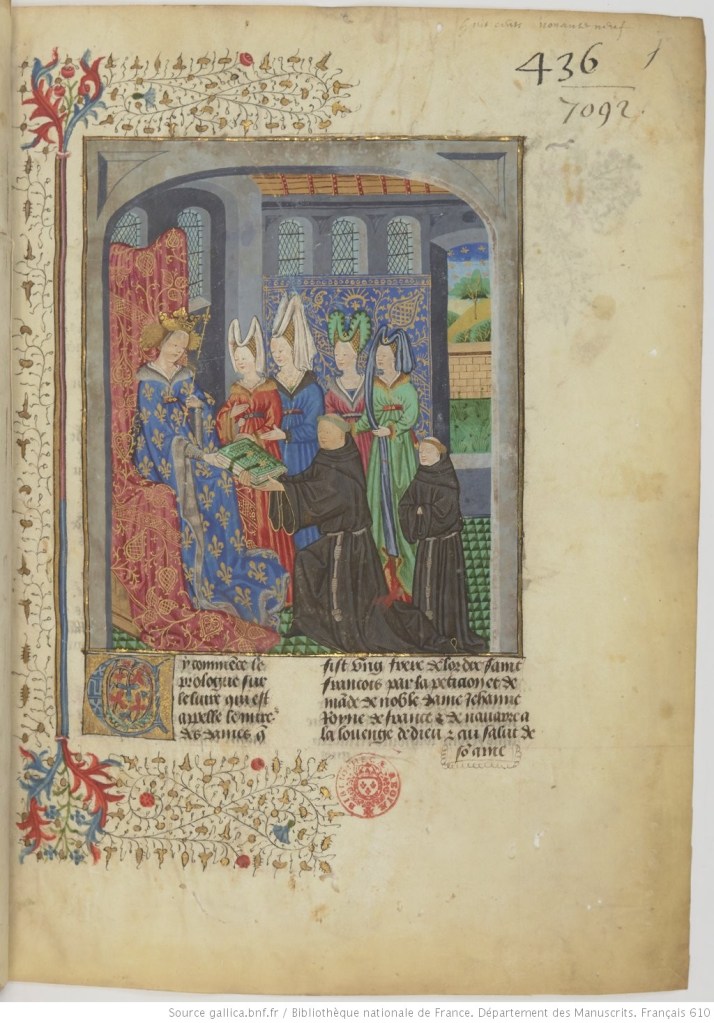 436
1
7092
Cy commēce le
prologue sur
le liure qui est
appelle le miroir
des dames q̄
fist vng frere de lordre saint
francois par la peticion et de
māde de noble dame Jehanne
Royne de france ⁊ de nauarre a
la louenge de dieu ⁊ au salut de
sō ame
Source gallica.bnf.fr / Bibliothèque nationale de France. Département des Manuscrits. Français 610